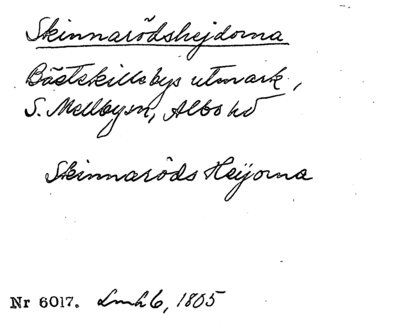 Skinnarödshejdorna
Bästekillebys utmark,
S. Mellbysn, Albo hd
Skinnaröds Heijorna
Nr 6017. Lmh 6, 1805